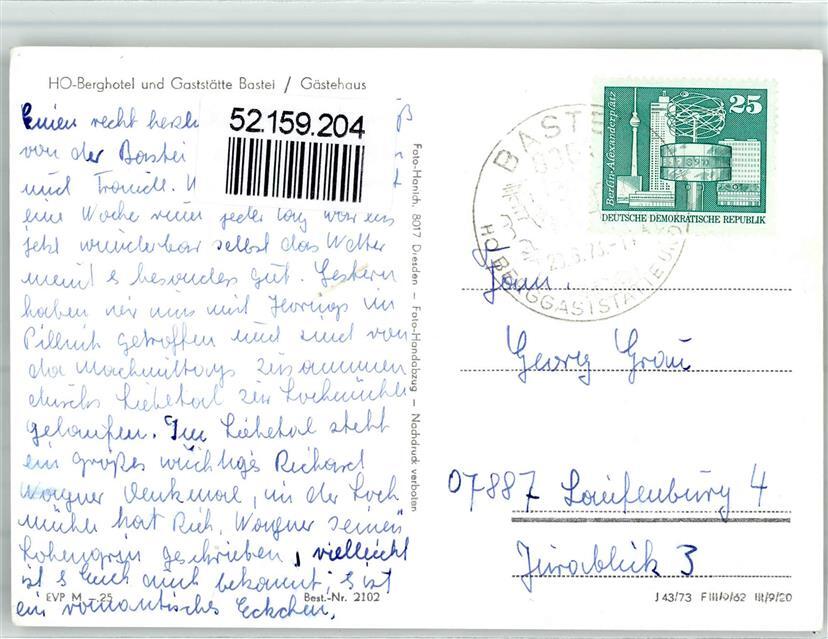 HO-Berghotel und Gaststätte Bastei / Gästehaus
Einen recht herzl
52.159.204
ß
von der Bastei
und Trondl.
eine Woche nun jeder Tag war uns
jetzt wunderbar selbst das Wetter
meint es besonders gut. Gestern
haben wir uns mit Hornigs in
Pillnitz getroffen und sind von
da Nachmittags zusammen
durchs Liebetal zur Lochmühle
gelaufen. Im Liebetal steht
ein großes wuchtiges Richard
Wagner Denkmal, in der Loch
mühle hat Rich. Wagner seinen
Lohengrin geschrieben, vielleicht
ist es Euch auch bekannt. Es ist
ein romantisches Eckchen.
EVP M —.25 Best.-Nr. 2102
Foto-Hanich, 8017 Dresden — Foto-Handabzug — Nachdruck verboten
BASTEI
HO BERGGASTSTÄTTE UND
25
Berlin-Alexanderplatz
DEUTSCHE DEMOKRATISCHE REPUBLIK
Fam.
Georg Grau
07887 Laufenburg 4
Jurablick 3
J 43/73 F III/9/62 III/9/20